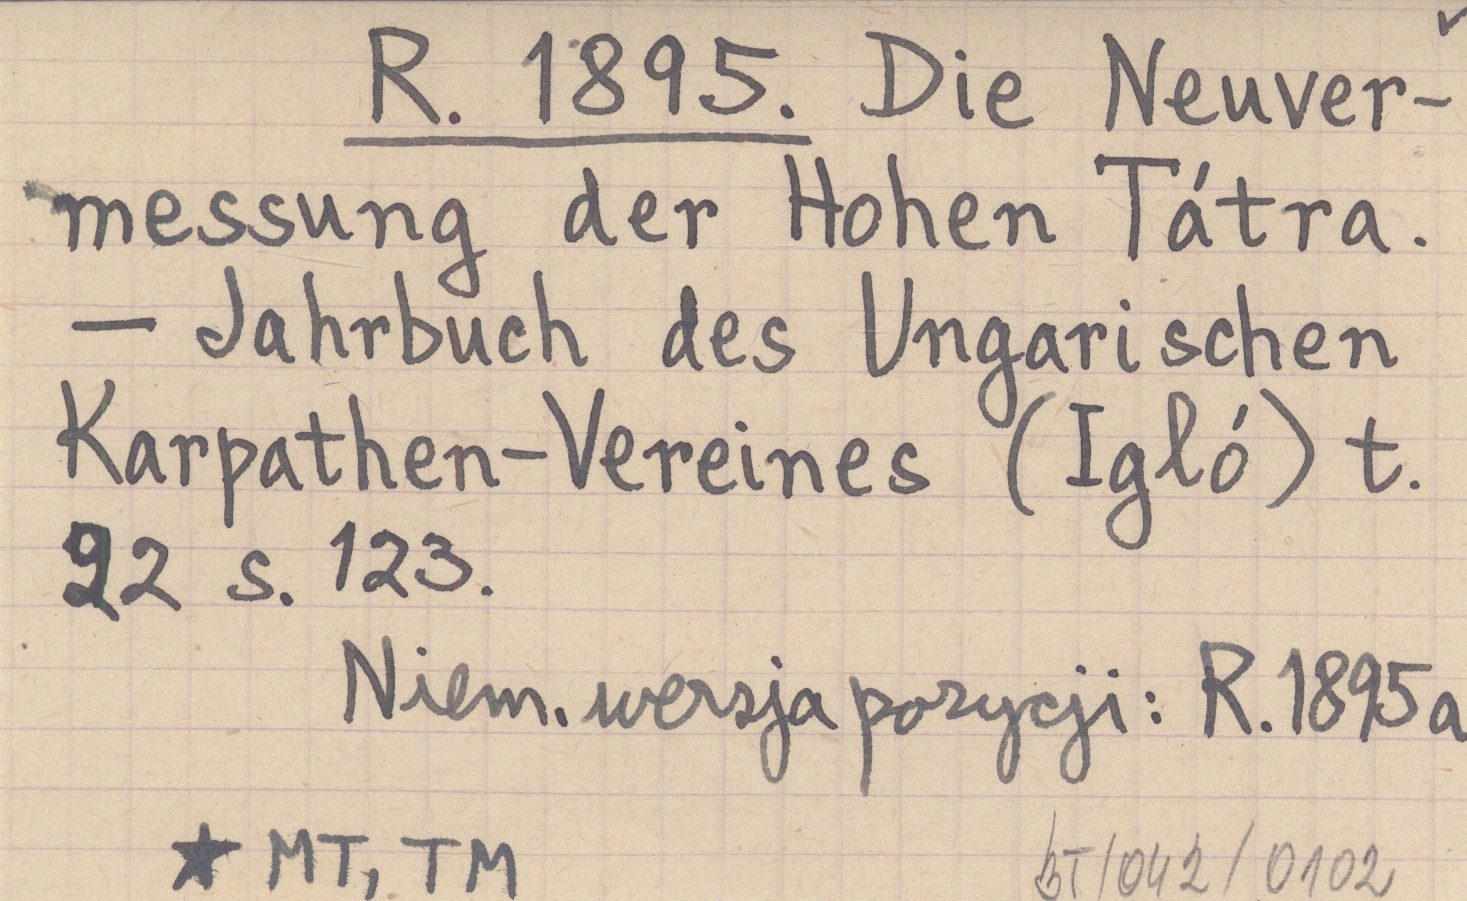 R. 1895. Die Neuver-
messung der Hohen Tátra.
— Jahrbuch des Ungarischen
Karpathen-Vereines (Igló) t.
22 s. 123.
Niem. wersja pozycji: R. 1895a
★ MT, TM
BT/042/0102